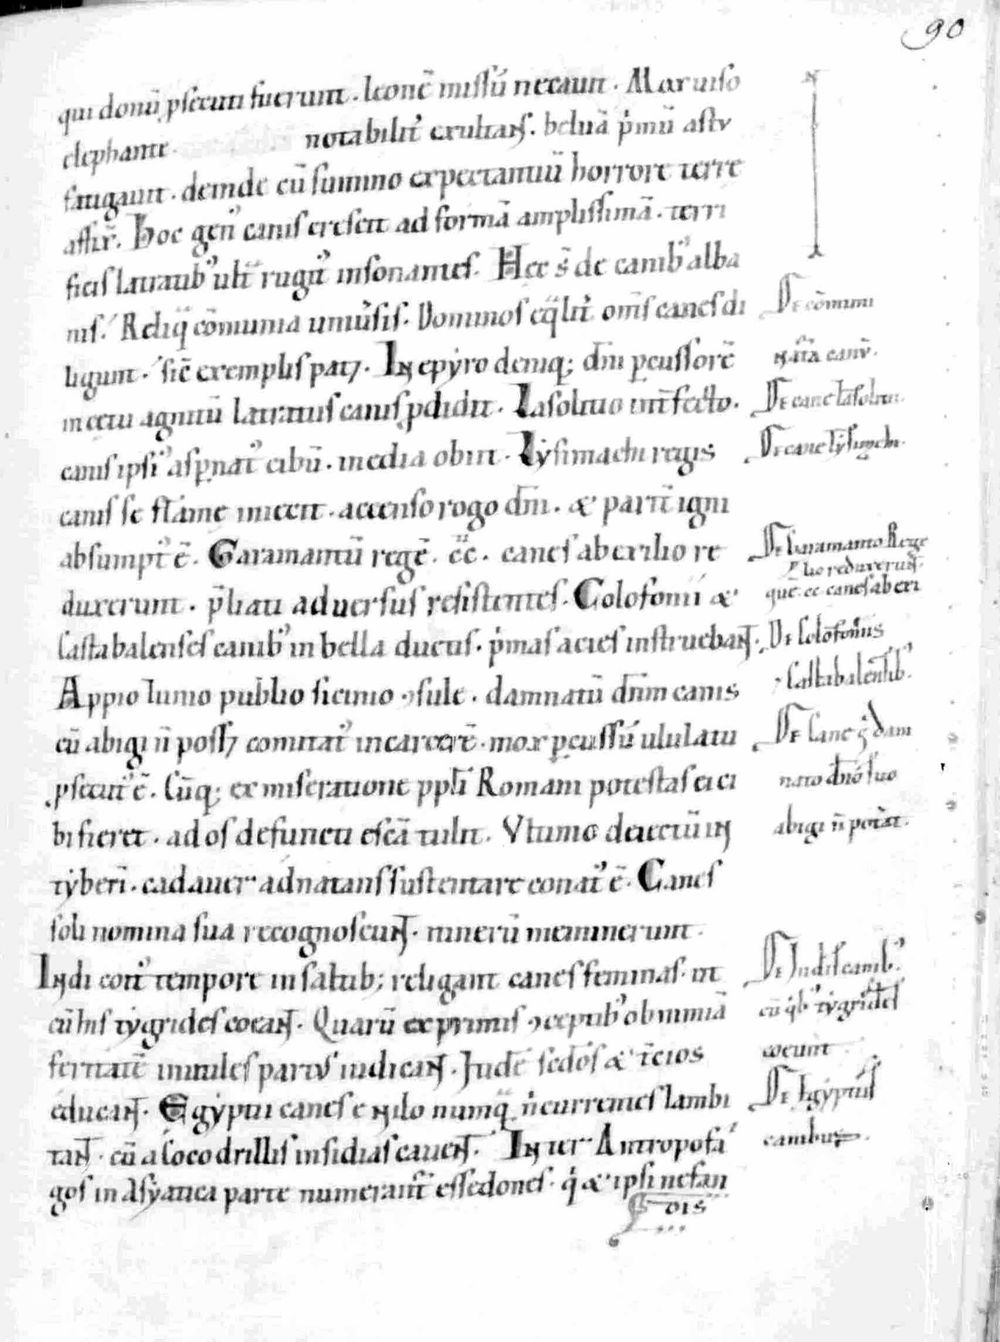 90
qui donū ꝓsecuti fuerunt. leonē missū necauit. Mox uiso
elephante. notabilit̉ exultans. beluā p̉mū astu
fatigauit. deinde cū summo expectantiū horrore terre
afflix̄. Hoc gen᾽ canis crescit ad formā amplissimā. terri
ficis latratib᾽ ult̄ rugit᾽ insonantes. Hec s̄ de canib᾽ alba
nis. Reliq̄ cōmunia uniu̕sis. Dominos eq̄lit̉ om̄s canes di
ligunt. sic̄ exemplis patꝫ. In epyro deniq; dn̄i ꝑcussorē
in cetu agnitū latratus canis ꝓdidit. Iasol inter̄fecto.
canis ipsi᾽ aspnat᾽ cibū. inedia obiit. Lysimachi regis
canis se flāme iniecit. accenso rogo dn̄i. & parit̄ igni
absumpt᾽ ē. Garamantū regē. cc̄. canes ab exilio re
duxerunt. p̄liati aduersus resistentes. Colofonii &
Castabalenses canib᾽ in bella ductis. p̉mas acies instruebant.
Appio Iunio publio sicinio ꝯsule. damnatū dn̄m canis
cū abigi n̄ possꝫ comitat᾽ in carcerē. mox ꝑcussū ululatu
ꝓsecut᾽ ē. Cūq; ex miseratione ppl̄i Romani potestas ei ci
bi fieret. ad os defuncti escā tulit. Vltimo deiectū in
tyberī. cadauer adnatans sustentare conat᾽ ē. Canes
soli nomina sua recognoscunt. itinerū meminerunt.
Indi coit᾽ tempore in saltib; religant canes feminas. ut
cū his tygrides coeant. Quarū ex primis ꝯceptib᾽ ob nimiā
feritatē inutiles part᾽ iudicant. Indē sedos & t̄cios
educant. Egyptii canes e nilo numq̄ n̄ currentes lambi
tant. cū a cocodrillis insidias cauent. Inter Antropofa
gos in Asyatica parte numerant̉ essedones. q̉ & ipsi nefan
dis
De cōmuni
nat̄a canū.
De cane
De cane lysimachi.
De Garamanto Rege
reduxerunt
que. cc. canes ab exi
De Colofoniis
Castabalensib᾽.
De Cane q̉dam
nato dn̄o suo
abigi n̄ poterat.
De Indis canib᾽.
cū q̉b᾽ tygrides
coeunt
De Egyptiis
canibus.